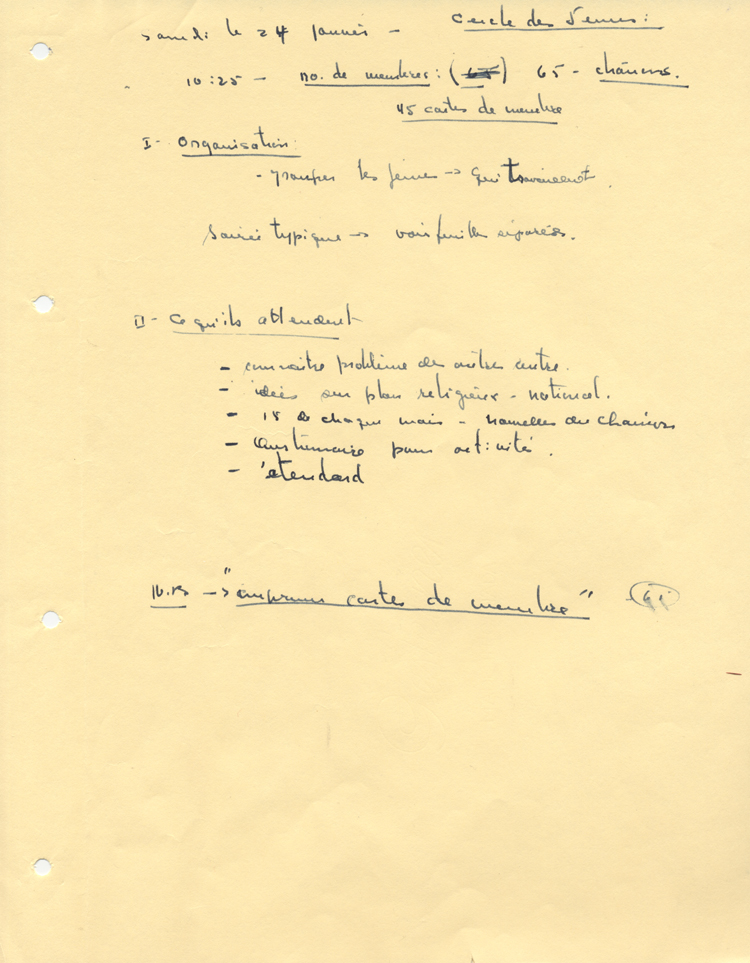 samedi le 24 janvier - Cercle des Jeunes :
10:25 - no. de membres : ( ) 65 - chaînons.
45 cartes de membre
I - Organisation :
- grouper les jeunes → qui travaillent.
Soirée typique → voir feuilles séparées.
II - Ce qu'ils attendent
- connaître problème des autres centre.
- idées sur plan religieux - national.
- 15 de chaque mois - nouvelles des Chaînons
- Questionnaire pour activités.
- étendard
N.B. - "imprimer cartes de membre"